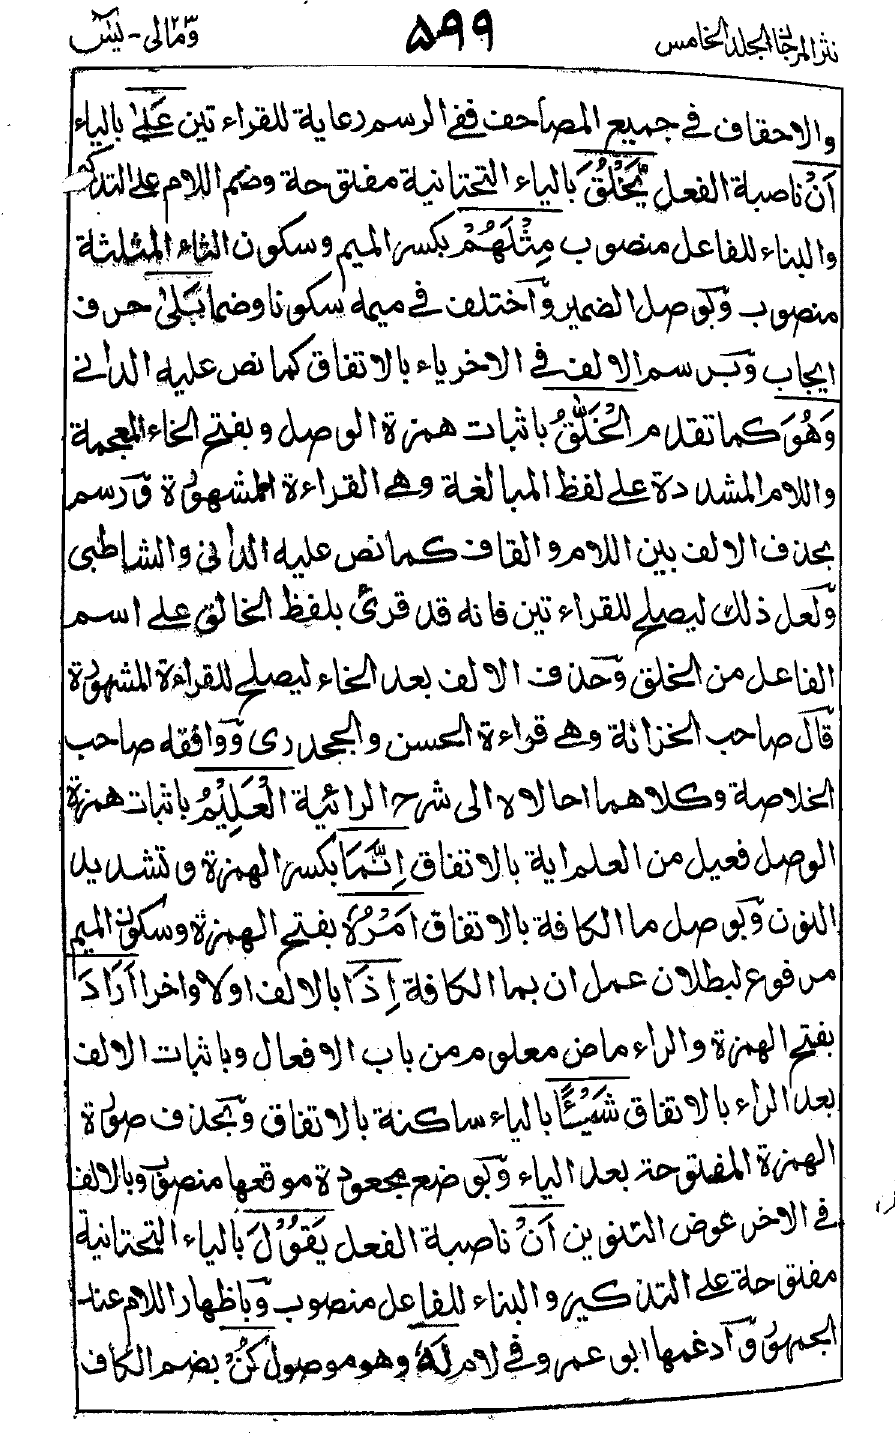 نثر المرجان المجلد الخامس
۵۹۹
ومالى - يٰسٓ
والاحقاف فے جميع المصاحف ففے الرسم رعاية للقراءتين عَلٰے بالياء
اَنْ ناصبة الفعل يَّخْلُقَ بالياء التحتانية مفتوحة وضم اللام على التذكير
والبناء للفاعل منصوب مِثْلَهُمْ بكسر الميم وسكون الثاء المثلثة
منصوب وبوصل الضمير واختلف فے ميمه سكونا وضما بَلٰى حرف
ايجاب وبرسم الالف فے الاخر ياء بالاتفاق كما نص عليه الدانے
وَهُوَ كما تقدم الْخَلّٰقُ باثبات همزة الوصل وبفتح الخاء المعجمة
واللام المشددة على لفظ المبالغة وهے القراءة المشهورة ورسم
بحذف الالف بين اللام والقاف كما نص عليه الدانى والشاطبى
ولعل ذلك ليصلح للقراءتين فانه قد قرئ بلفظ الخالق على اسم
الفاعل من الخلق وحذف الالف بعد الخاء ليصلح للقراءة المشهورة
قال صاحب الخزانة وهے قراءة الحسن والجحدرى ووافقه صاحب
الخلاصة وكلاهما احالاه الى شرح الرائية الْعَلِيْمُ باثبات همزة
الوصل فعيل من العلم اية بالاتفاق اِنَّمَا بكسر الهمزة وتشديد
النون وبوصل ما الكافة بالاتفاق اَمْرُهٗ بفتح الهمزة وسكون الميم
مرفوع لبطلان عمل ان بما الكافة اِذَا بالالف اولا واخرا اَرَادَ
بفتح الهمزة والراء ماض معلوم من باب الافعال وباثبات الالف
بعد الراء بالاتفاق شَيْـًٔا بالياء ساكنة بالاتفاق وبحذف صورة
الهمزة المفتوحة بعد الياء وبوضع مجعودة موقعها منصوب وبالالف
فے الاخر عوض التنوين اَنْ ناصبة الفعل يَقُوْلَ بالياء التحتانية
مفتوحة على التذكير والبناء للفاعل منصوب وباظهار اللام عند
الجمهور وادغمها ابو عمرو فے لام لَهٗ وهو موصول كُنْ بضم الكاف